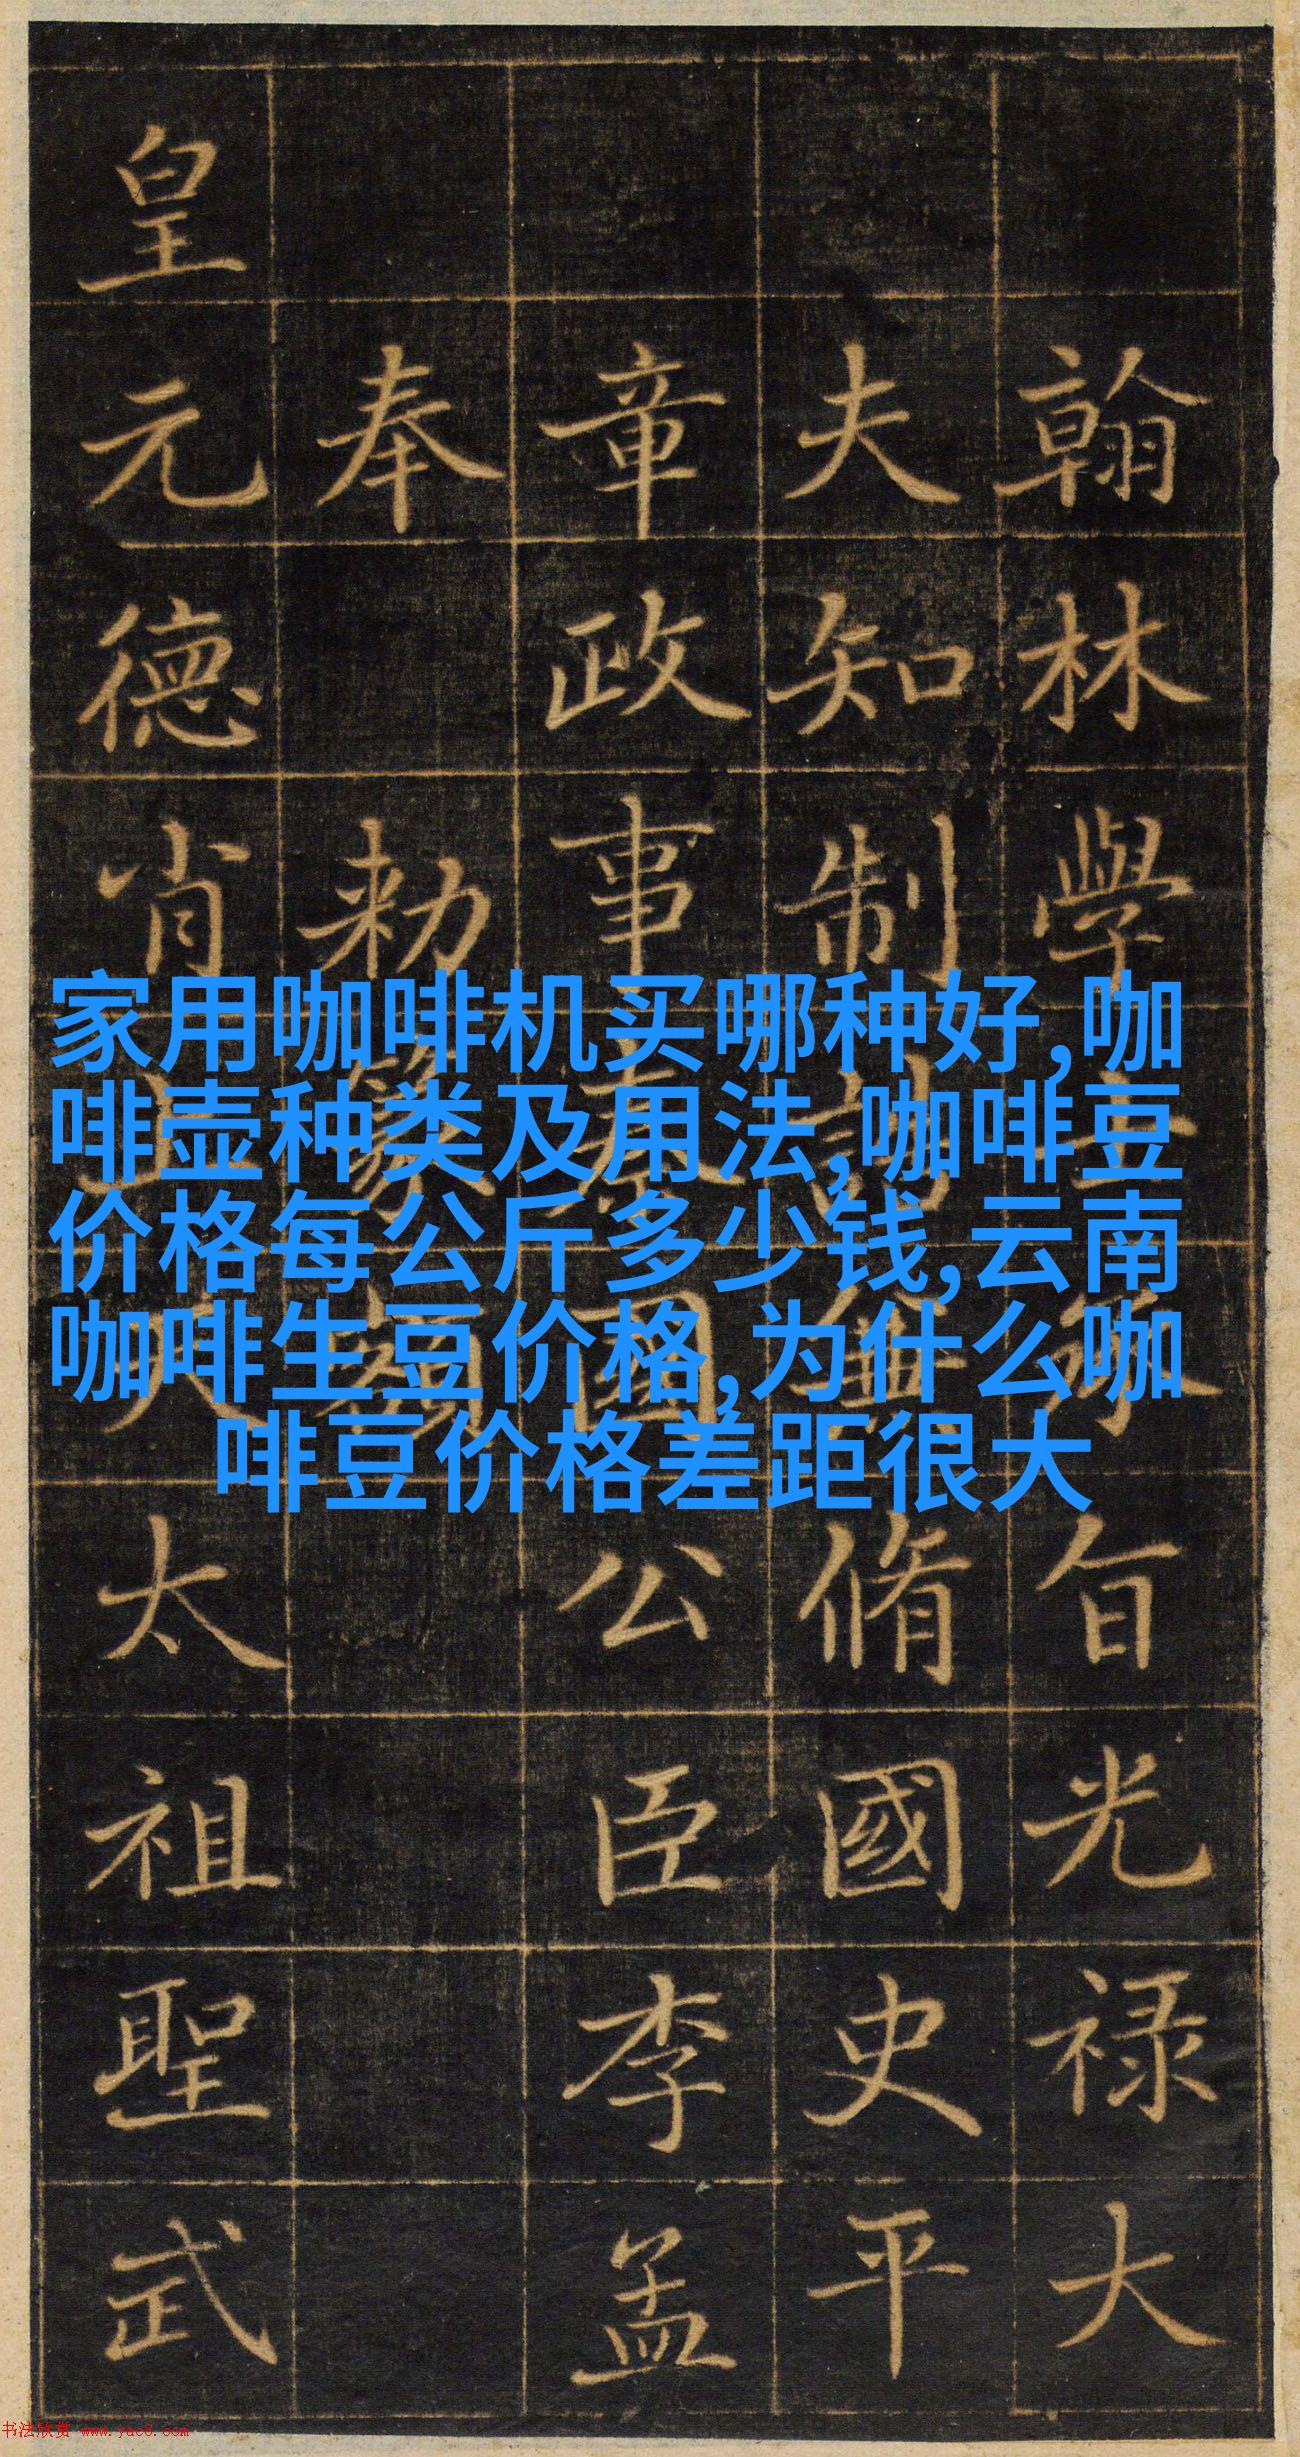 家用咖啡机买哪种好,咖
啡壶种类及用法,咖啡豆
价格每公斤多少钱,云南
咖啡生豆价格,为什么咖
啡豆价格差距很大
翰林學士承旨光禄大
夫知制誥兼脩國史平
章政事秦國公臣李孟
奉 勑篆額
皇元德肖太祖聖武
书法欣赏 www.yac8.com